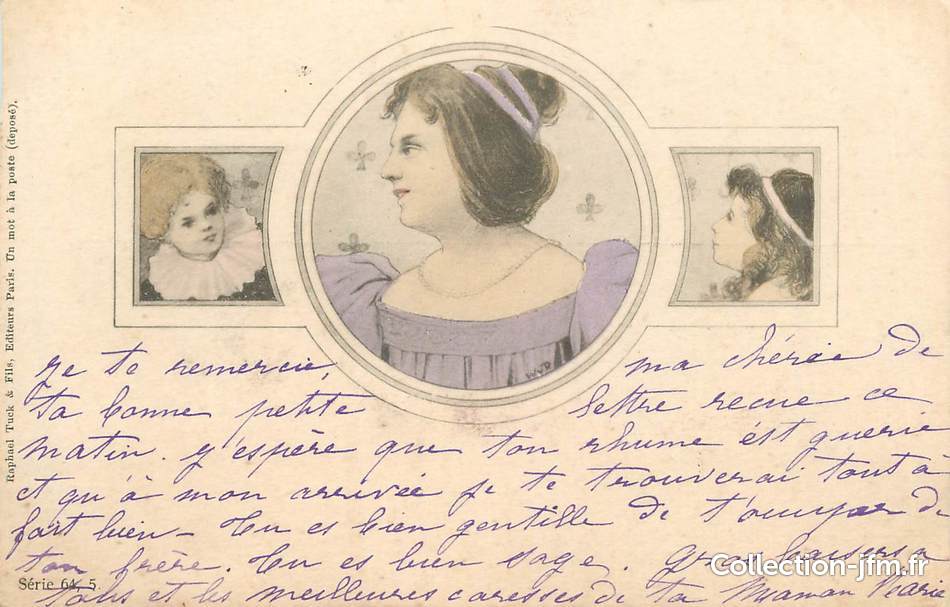 Raphael Tuck & Fils, Editeurs Paris. Un mot à la poste (deposé).
WVD
je te remercie, ma chérie de
ta bonne petite lettre reçue ce
matin. j'espère que ton rhume est guerie
et qu'à mon arrivée je te trouverai tout à
fait bien - Tu es bien gentille de t'occuper de
ton frère. Tu es bien sage. Gros baisers a
tous et les meilleures caresses de ta Maman Marie
Série 64, 5.
Collection-jfm.fr